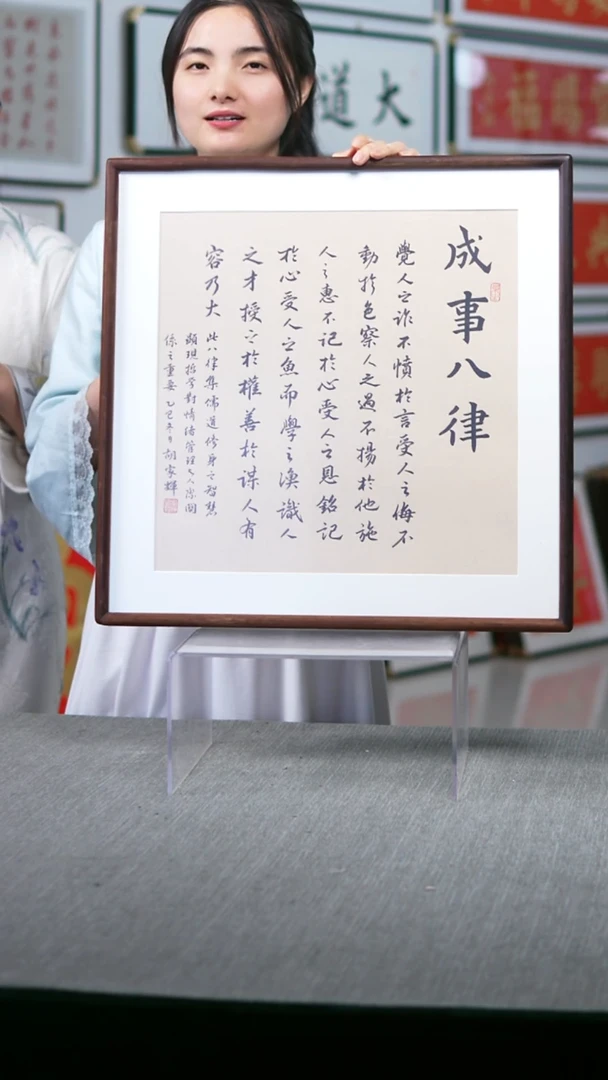 成事八律
覺人之詐不憤於言受人之侮不
動於色察人之過不揚於他施
人之惠不記於心受人之恩銘記
於心受人之魚而學之漁識人
之才授之於權善於謀人有
容乃大
此八律集儒道修身之智慧
顯現哲學對情緒管理人際關
係之重要乙巳年 胡家輝
大道
賜福